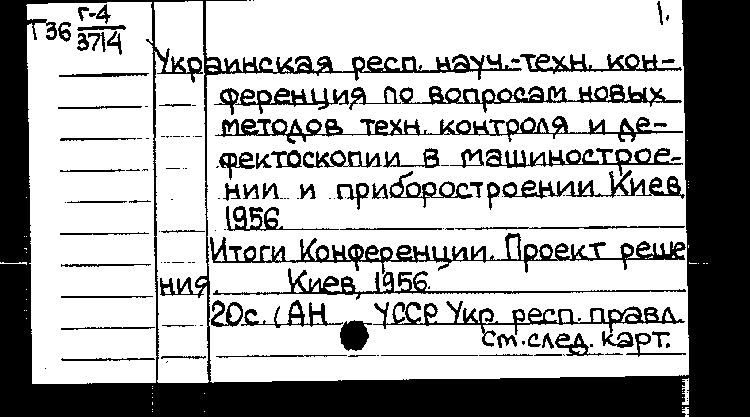 1.
Т36 Г-4
3714
Украинская респ. науч.-техн. кон-
ференция по вопросам новых
методов техн. контроля и де-
фектоскопии в машинострое-
нии и приборостроении. Киев,
1956.
Итоги Конференции. Проект реше
ния. Киев, 1956.
20с. (АН УССР Укр. респ. правл.
см.след. карт.